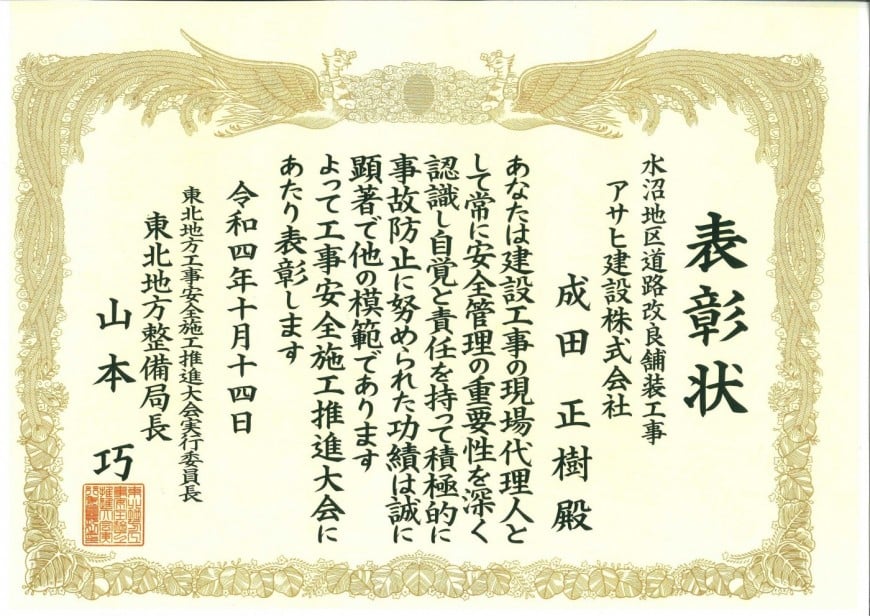 表彰状
水沼地区道路改良舗装工事
アサヒ建設株式会社
成田 正樹 殿
あなたは建設工事の現場代理人と
して常に安全管理の重要性を深く
認識し自覚と責任を持って積極的に
事故防止に努められた功績は誠に
顕著で他の模範であります
よって工事安全施工推進大会に
あたり表彰します
令和四年十月十四日
東北地方工事安全施工推進大会実行委員長
東北地方整備局長
山本 巧